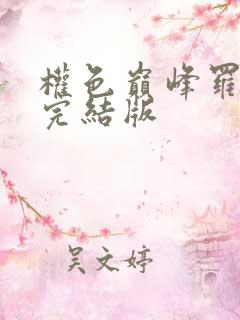 權色巔峰羅
完結版
吴文婷